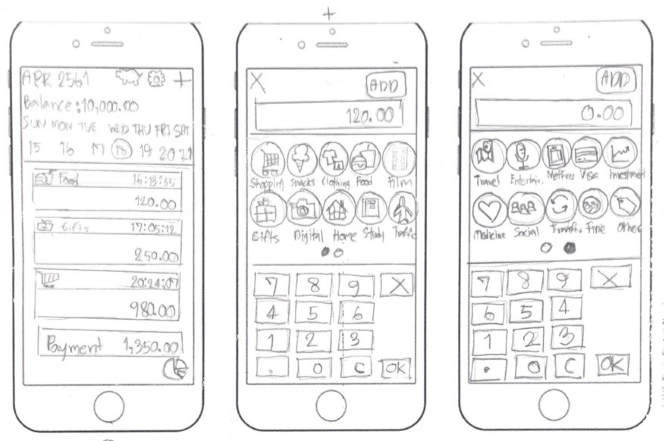 APR 2561
Balance : 10,000.00
SUN MON TUE WED THU FRI SAT
15 16 17 18 19 20 21
Food 16:18:35
120.00
Gifts 17:05:12
250.00
20:24:07
980.00
Payment 1,350.00
+
X ADD
120.00
Shopping Snacks Clothing Food Film
Gifts Digital Home Study Traffic
7 8 9 X
4 5 6
1 2 3
. 0 C OK
X ADD
0.00
Travel Entertain. Visa Investment
Medicine Social Transfer Fine Other
7 8 9 X
6 5 4
1 2 3
. 0 C OK